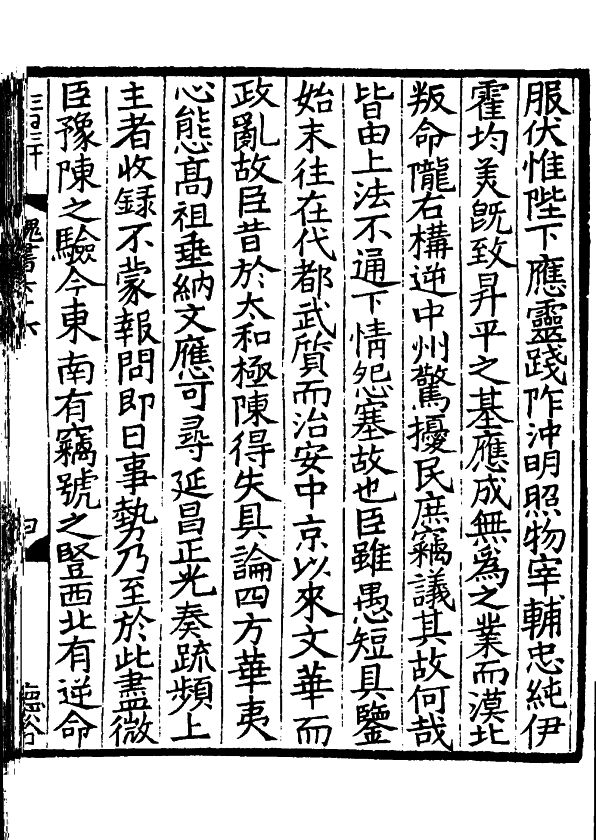 服伏惟陛下應靈踐阼沖明照物宰輔忠純伊
霍均美旣致昇平之基應成無爲之業而漠北
叛命隴右構逆中州驚擾民庶竊議其故何哉
皆由上法不通下情怨塞故也臣雖愚短具鑒
始末往在代都武質而治安中京以來文華而
政亂故臣昔於太和極陳得失具論四方華夷
心態高祖垂納文應可尋延昌正光奏疏頻上
主者收録不蒙報問即日事勢乃至於此盡微
臣豫陳之驗今東南有竊號之豎西北有逆命